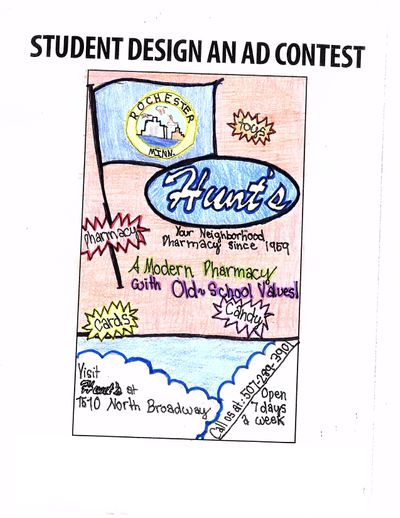 STUDENT DESIGN AN AD CONTEST
ROCHESTER
MINN.
Toys
Hunt's
Your Neighborhood
Pharmacy since 1959
Pharmacy
A Modern Pharmacy
with Old-School Values!
Cards
Candy
Visit
Hunt's at
1510 North Broadway
Call us at: 507-289-3901
Open
7 days
a week